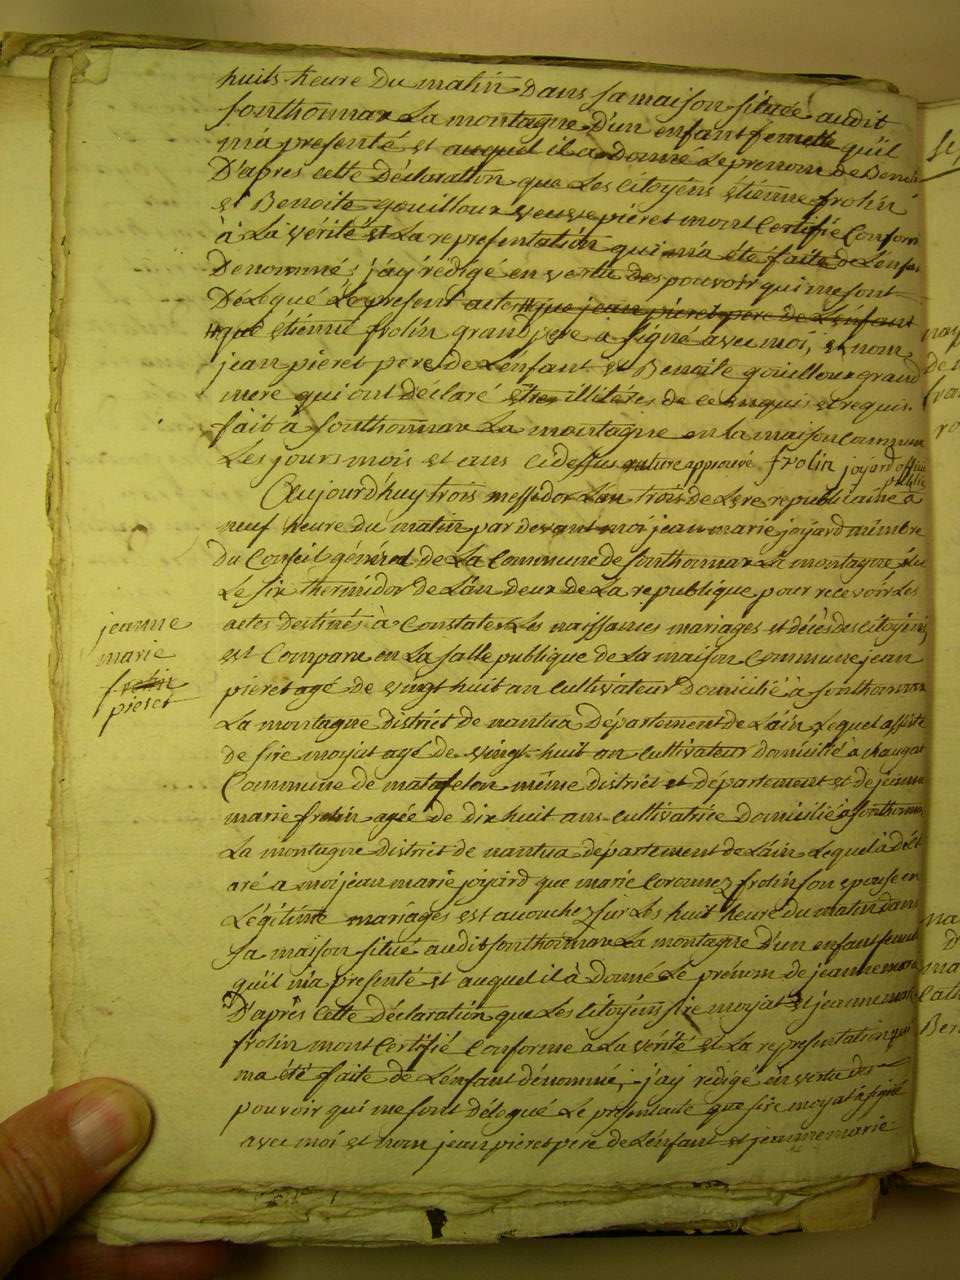 huits heure Du matin Dans Sa maison Située audit
fonthonnax La montagne D'un enfant femelle qu'il
m'a présenté et auquel il a Donné Le prenom De Benoite
D'apres cette Déclaration que Les Citoyens étienne frolin
et Benoite gouilloux veuve pieret mont Certifié Conform
à La vérité et La representation qui m'a été faite De Lenfant
Denommé, j'ay rédigé en vertu des pouvoir qui me sont
Délégué Le present acte que jean pieret pere De Lenfant
que étienne frolin grand pere a signé avec moi, et non
jean pieret pere De Lenfant et Benoite gouilloux grand
mere qui ont déclaré être illitérés de ce enquis et requis.
fait à fonthonnax La montagne en la maison Commune
Les jours mois et ans Cidessus rature approuvé frolin joyard officier
public
Aujourd'huy trois messidor L'an trois de L'ere republicaine à
neuf heure du matin par devant moi jean marie joyard membre
du Conseil général de La Commune De fonthonnax La montagne élu
Le six thermidor de L'an deux de La republique pour recevoir Les
actes Destinés à Constater Les naissances mariages et décés des Citoyens
est Comparu en La salle publique de La maison Commune jean
pieret agé De vingt huit an Cultivateur Domicilié à fonthonnax
La montagne District de nantua Département de L'ain Lequel assisté
de sire moyat agé de vingt huit an cultivateur domicilié à chaugat
Commune de matafelon même district et département et de jeanne
marie frolin agée de dix huit ans cultivatrice Domicilié à fonthonnax
La montagne District de nantua département de L'ain Lequel à décl
aré a moi jean marie joyard que marie frolin son epouse en
Légitime mariages est acouchez sur Les huit heure du matin dans
Sa maison situé audit fonthonnax La montagne D'un enfant femel
qu'il m'a presenté et auquel il à Donné Le prénom de jeanne marie
D'après Cette Déclaration que Les Citoyens sire moyat et jeanne marie
frolin mont Certifié Conforme à La vérité et La representation qui
ma été faite de L'enfant dénommé, j'ay redigé en vertu des
pouvoir qui me sont délégué Le present acte que sire moyat à signé
avec moi et non jean pieret père de L'enfant et jeanne marie
jeanne
marie
frolin
pieret